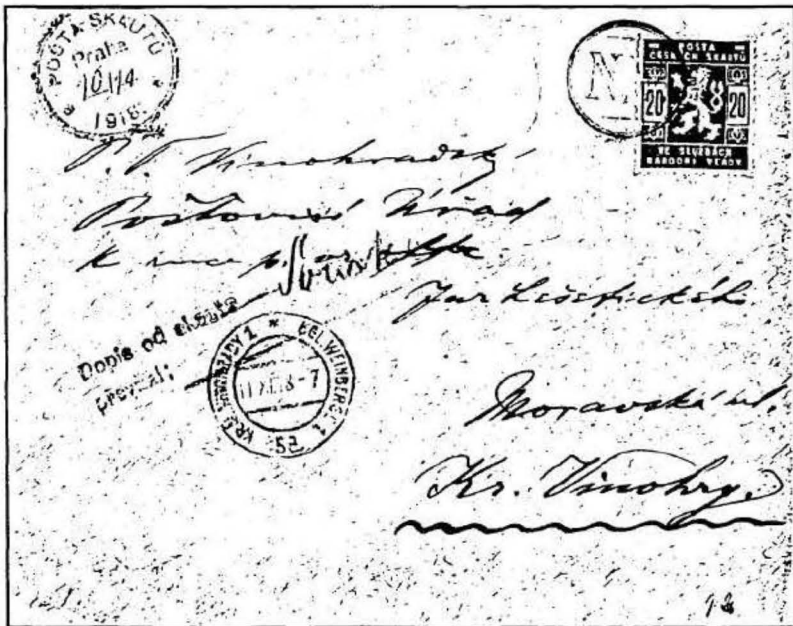 POŠTA SKAUTŮ
Praha
1918
N
POŠTA
ČESKÝCH SKAUTŮ
20 20
VE SLUŽBÁCH
NÁRODNÍ VLÁDY
Vinohradský
Poštovní Úřad
k ruce p.
Jar Lešetického
Dopis od skauta
převzal:
KRÁL. VINOHRADY 1 * KGL. WEINBERGE 1
-7
Moravská ul.
Kr. Vinohry.